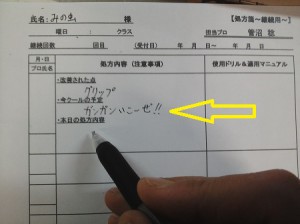 氏名：みの虫 様 【処方箋～継続用～】
曜日： クラス 担当プロ 菅沼 稔
継続回数 回目 （受付日） 年 月 日～ 年 月 日
月・日
プロ氏名 処方内容（注意事項） 使用ドリル＆適用マニュアル
・改善された点
グリップ
・今クールの予定
ガンガンいこーぜ!!
・本日の処方内容